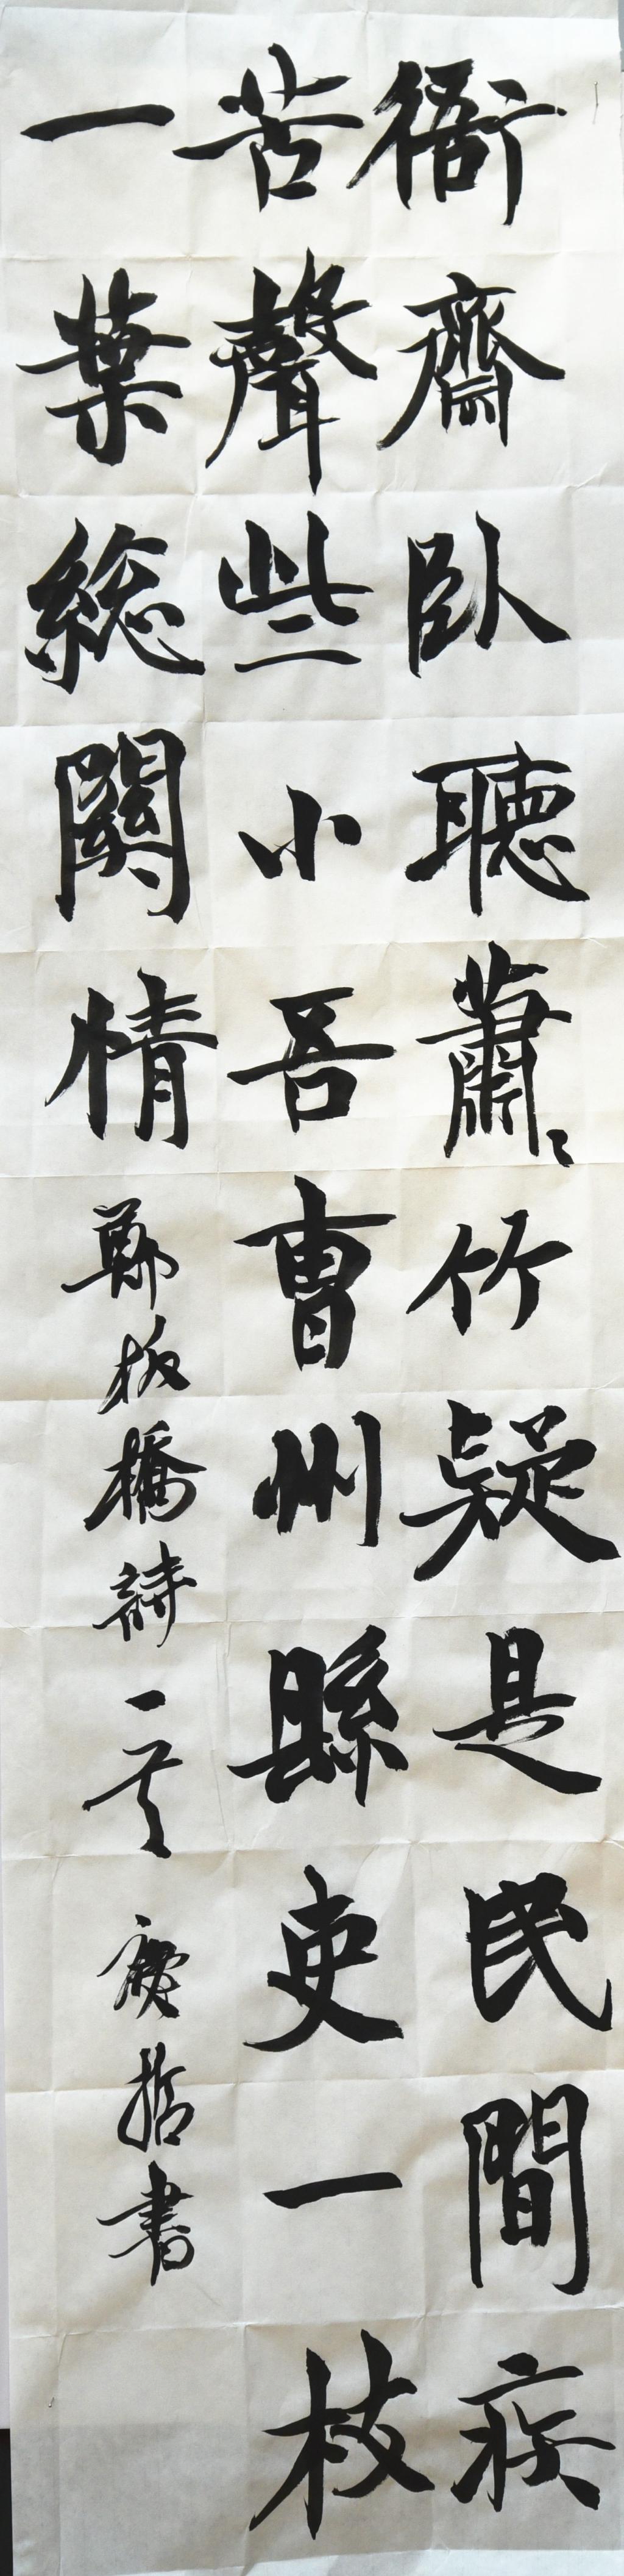 衙齋臥聽蕭〻竹疑是民間疾
苦聲些小吾曹州縣吏一枝
一葉総關情 鄭板橋詩一首 哲書